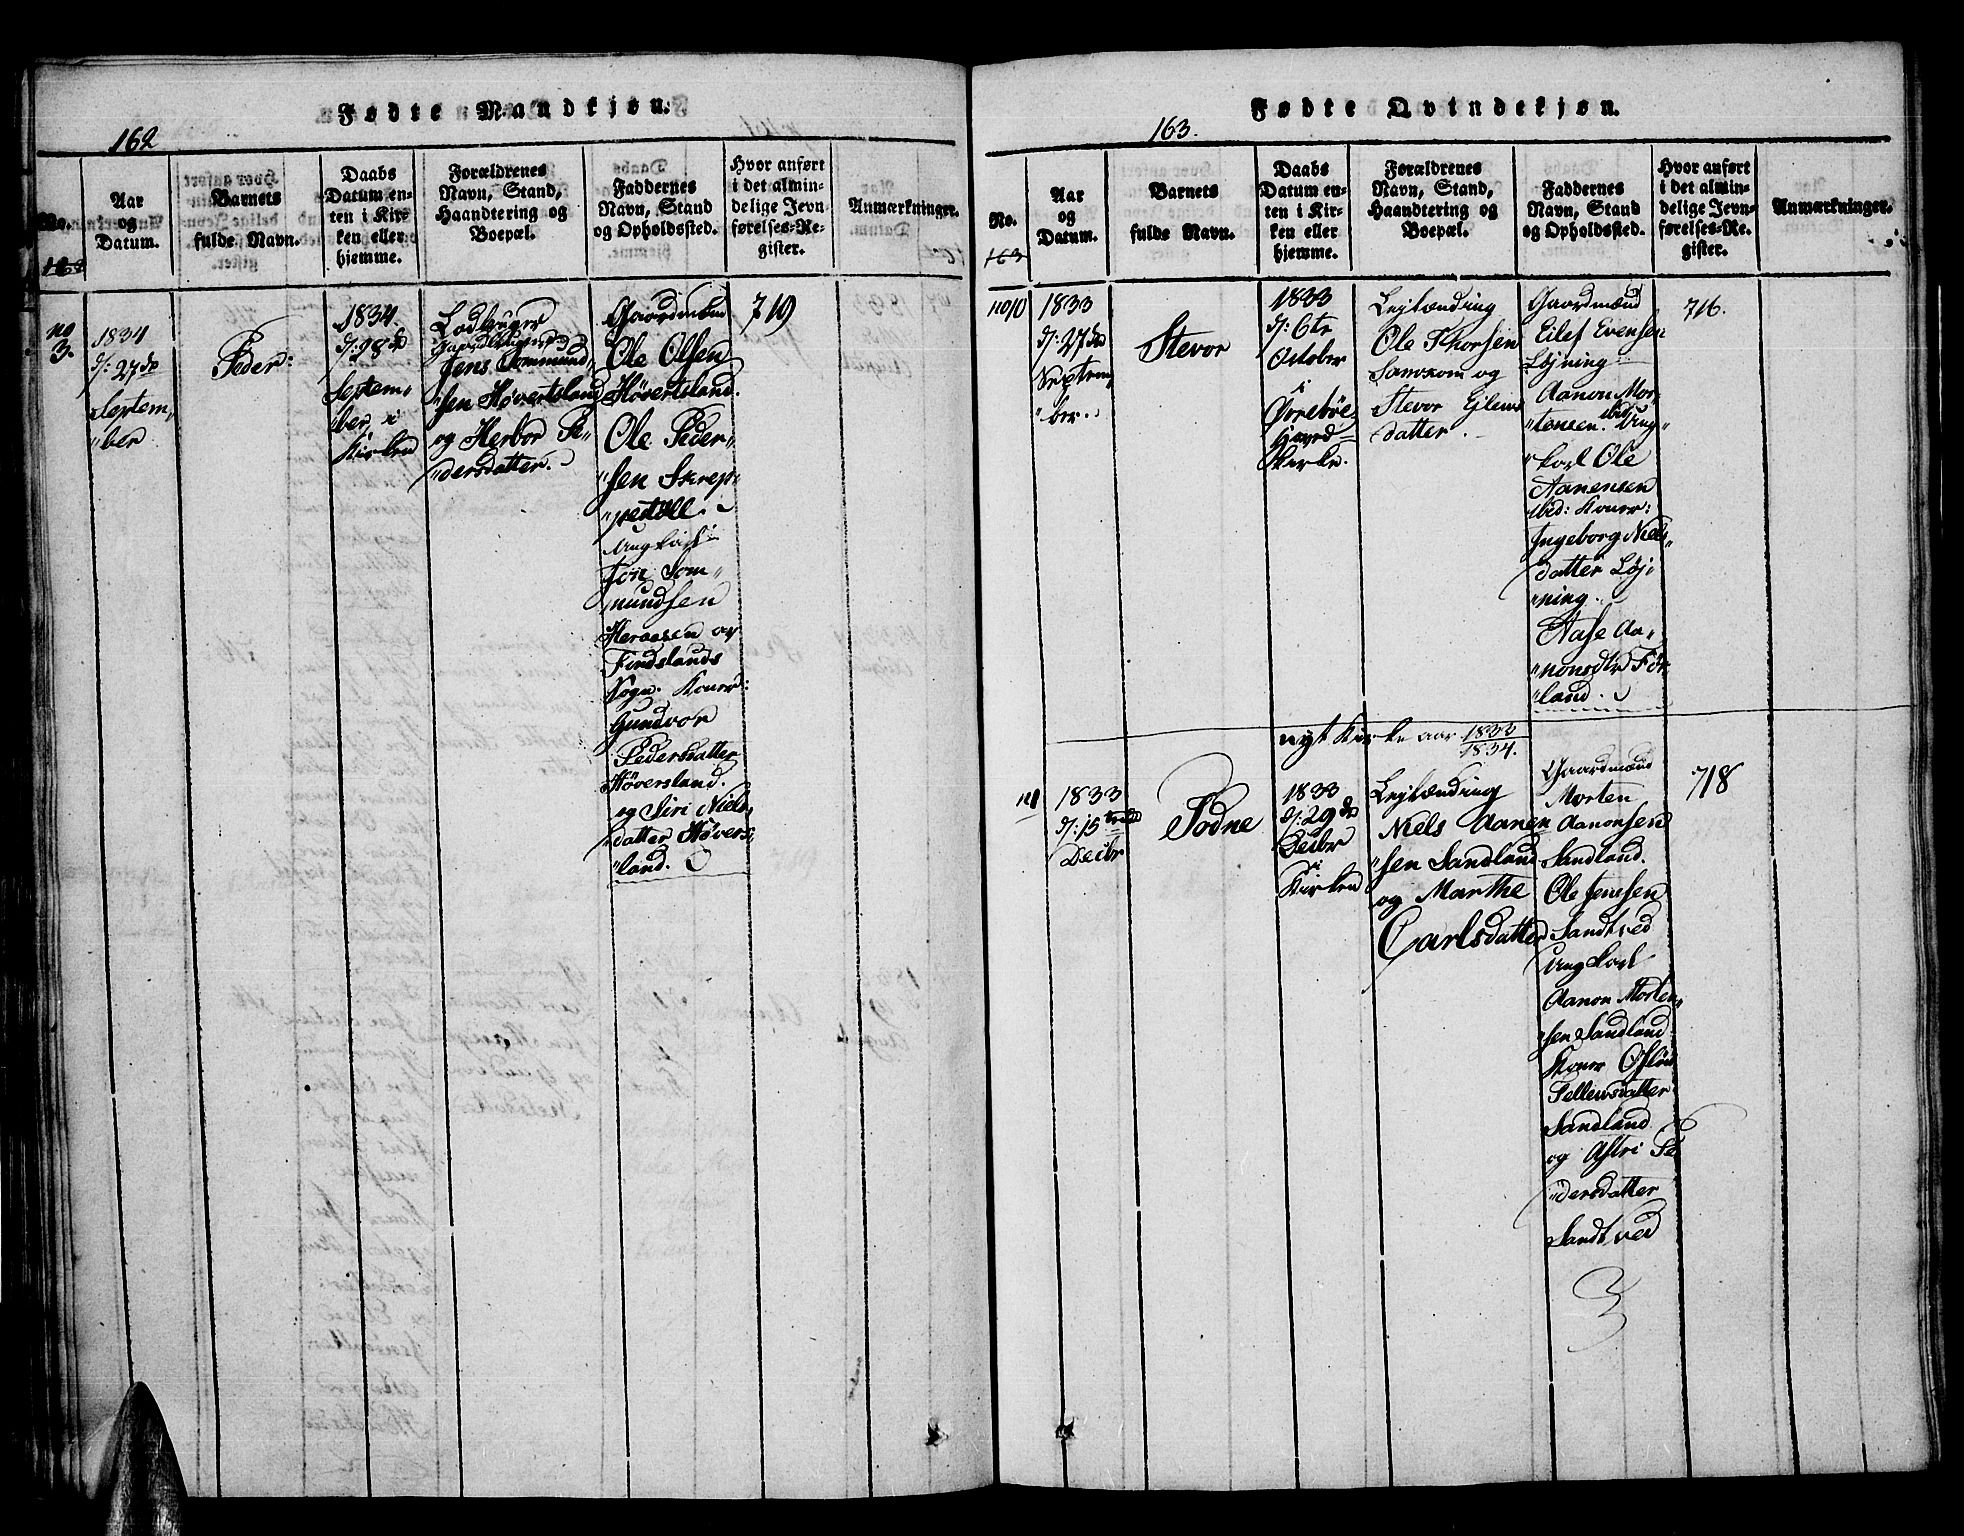 Fødte Mandkjøn.
162
No.
Aar
og
Datum.
Barnets
fulde Navn.
Daabs
Datum en-
ten i Kir-
ken eller
hjemme.
Forældrenes
Navn, Stand,
Haandtering og
Boepæl.
Faddernes
Navn, Stand
og Opholdssted.
Hvor anført
i det almin-
delige Jevn-
førelses-Re-
gister.
Anmærkninger.
no
3.
1834
d/: 27de
Septem„
„ber
Peder:
1834
d/: 28de
Septem„
„ber, i
Kirken
Jens Tommund„
„sen Høvertsland
og Herbor Pe„
„dersdatter.
Gaardmænd
Ole Olsen
Høvertsland.
Ole Peder„
„sen Skrep„
„pestøll.
Ungkarl
Jon Tom„
„mundsen
Heraasen av
Findslands
Sogn. Koner:
Gundvor
Pedersdatter
Høversland.
og Siri Niels„
„datter Høvers„
„land.
719
Fødte Qvindekjøn.
163.
No.
163
Aar
og
Datum.
Barnets
fulde Navn.
Daabs
Datum en-
ten i Kir-
ken eller
hjemme.
Forældrenes
Navn, Stand,
Haandtering og
Boepæl.
Faddernes
Navn, Stand
og Opholdssted.
Hvor anført
i det almin-
delige Jevn-
førelses-Re-
gister.
Anmærkninger.
no 10
1833
d/: 27de
Septem„
„ber.
Stevor
1833
d/: 6te
October
i
Øvrebøe
Hoved=
Kirke.
Lejlænding
Ole Thorsen
og
Stevor Ejlevs
datter.
Gaardmænd
Eilef Evensen
Løjning
Aanon Mor„
„tensen ibid: Ung„
„karl Ole
Aanensen
ibid: Koner:
Ingeborg Niels„
datter Løj„
„ning.
Aase Aa„
„nonsdtr Før„
„land.
716.
nyt Kirke aar 1833
1834.
n1
1833
d/: 15
Decbr
Todne
1833
d/: 29de
Decbr
i
Kirken
Lejlænding
Niels Aanen
„sen Sandland
og Marthe
Carlsdatter
Gaardmænd
Morten
Aanonsen
Sandland.
Ole Jensen
Sandtved
Ungkarl
Aanon Morten„
„sen Sandland
Koner Osløu
Tellevsdatter
Sandland
og Astri Pe
„dersdatter
Sandtved
718